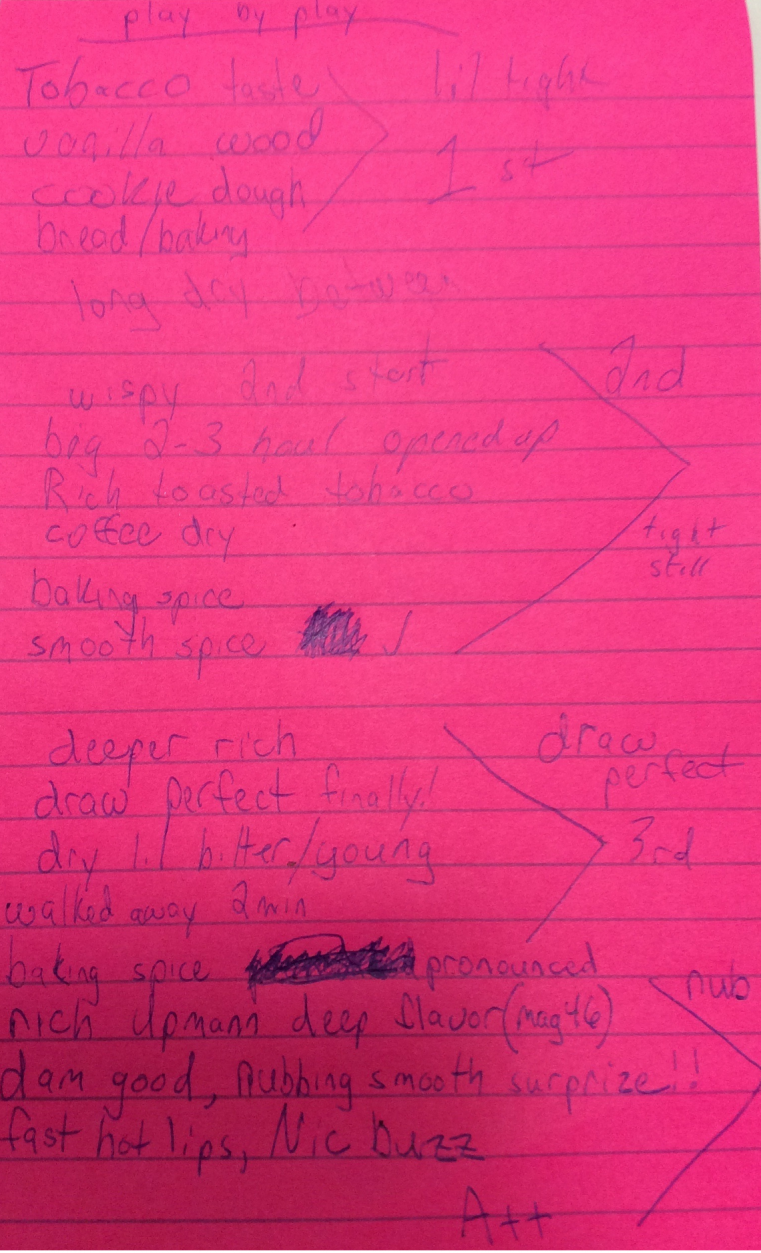 play by play
Tobacco taste
lil tight
vanilla wood
1st
cookie dough
bread/baking
long dry between
wispy 2nd start
2nd
big 2-3 haul opened up
Rich toasted tobacco
coffee dry
tight
still
baking spice
smooth spice ✓
deeper rich
draw
perfect
draw perfect finally!
dry lil bitter/young
3rd
walked away 2 min
baking spice pronounced
nub
rich Upmann deep flavor (mag 46)
dam good, nubbing smooth surprize!!
fast hot lips, Nic buzz
A++